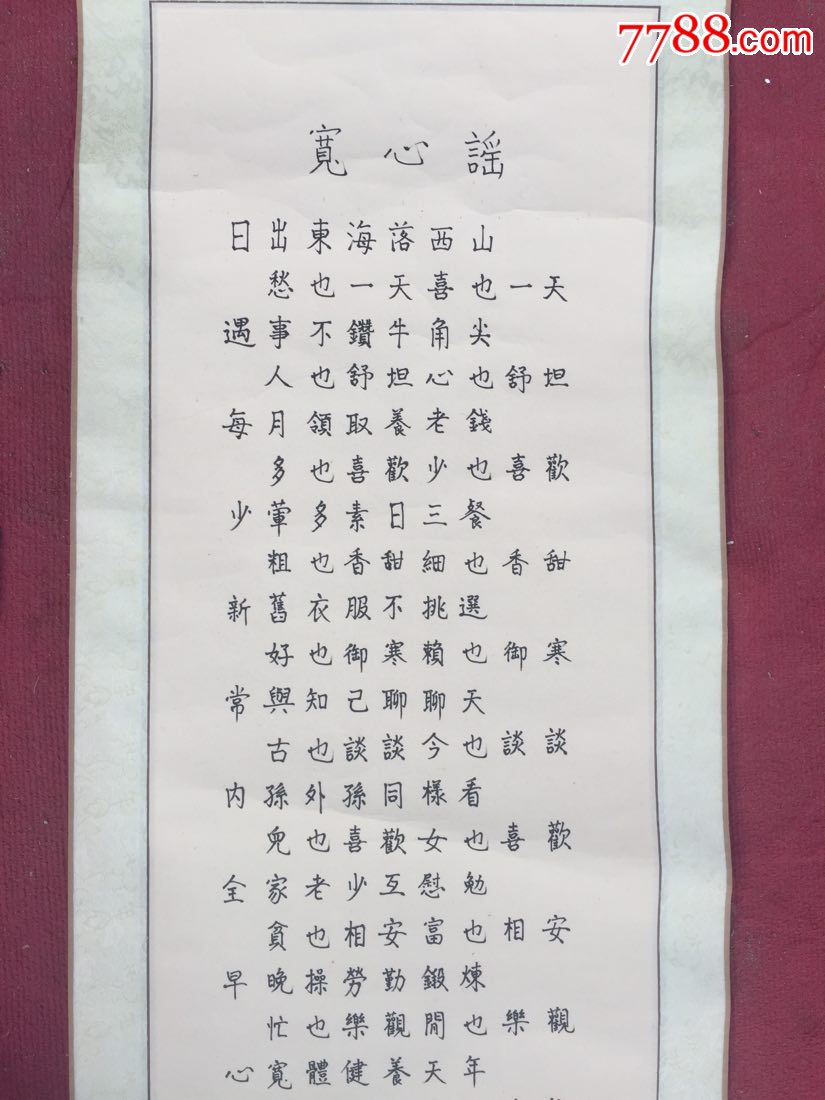 7788.com
寬心謡
日出東海落西山
愁也一天喜也一天
遇事不鑽牛角尖
人也舒坦心也舒坦
每月領取養老錢
多也喜歡少也喜歡
少葷多素日三餐
粗也香甜細也香甜
新舊衣服不挑選
好也御寒賴也御寒
常與知己聊聊天
古也談談今也談談
内孫外孫同樣看
兒也喜歡女也喜歡
全家老少互慰勉
貧也相安富也相安
早晚操勞勤鍛煉
忙也樂觀閒也樂觀
心寬體健養天年